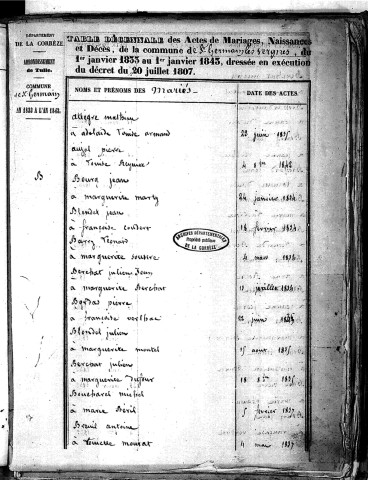 DÉPARTEMENT
DE LA CORRÈZE
ARRONDISSEMENT
de Tulle.
COMMUNE
de St Germain
AN 1833 A L'AN 1843.
TABLE DÉCENNALE des Actes de Mariages, Naissances
et Décès, de la commune de St Germain les vergnes, du
1er janvier 1833 au 1er janvier 1843, dressée en exécution
du décret du 20 juillet 1807.
NOMS ET PRÉNOMS DES mariés. DATE DES ACTES.
allegre mathieu
à adelaïde armand 22 juin 1835
pierre
à 4 1842
B Bourg jean
à marguerite marty 24 janvier 1834
Blondel jean
à françoise coudert 18 fevrier 1834
Barry Léonard
à marguerite 4 mars 1835
Berchat julien
à marguerite Berchat 11 juillet 1834
Bordas pierre
à françoise verlhac 22 juin
Blondel julien
à marguerite montel 15 1835
Berchat julien
à marguerite Dufour 18 1835
Boucharel michel
à marie 5 fevrier 1837
Breuil antoine
à mourat 4 mai 1837
ARCHIVES DÉPARTEMENTALES
Propriété publique
DE LA CORRÈZE